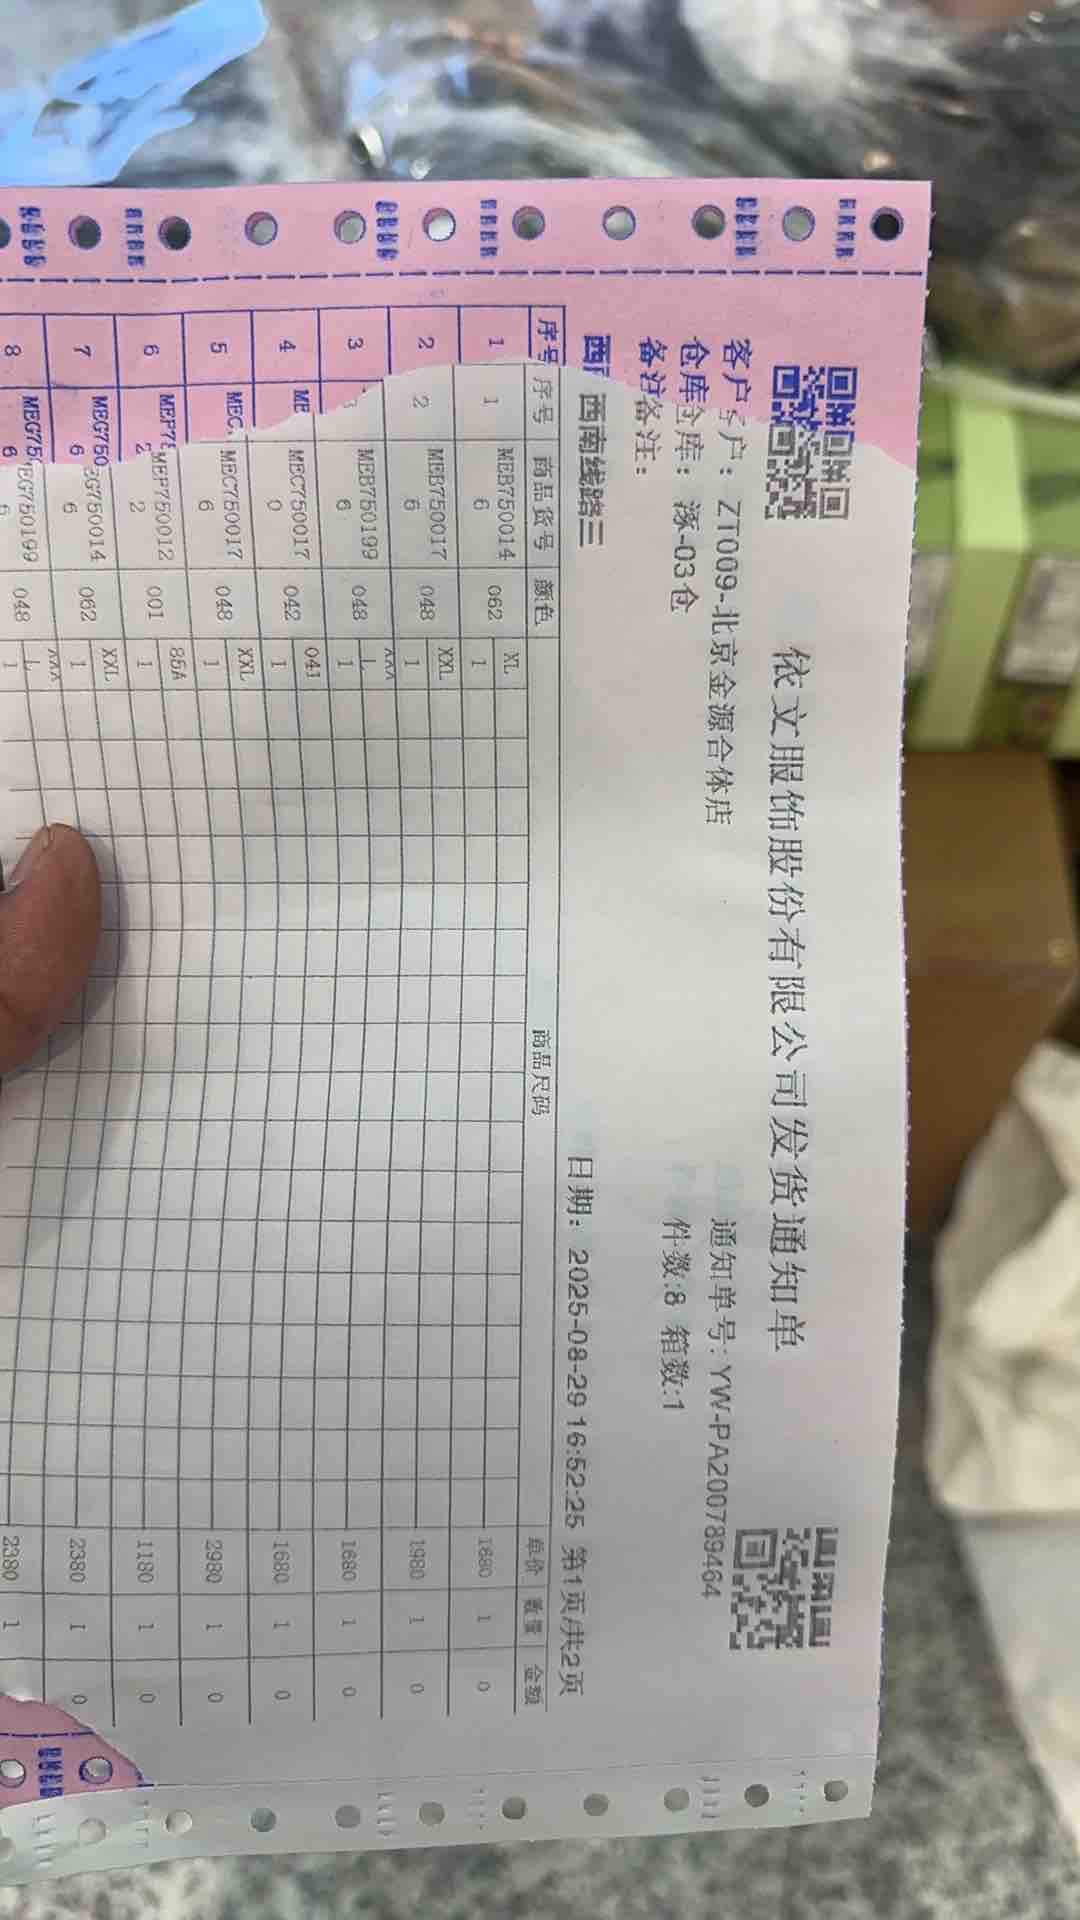 依文服饰股份有限公司发货通知单
客户：ZT009-北京金源合体店 通知单号：YW-PA200789464
仓库：涿-03仓 件数:8 箱数:1
备注：
西南线路三 日期：2025-08-29 16:52:25 第1页/共2页
序号 商品货号 颜色 商品尺码 单价 数量 金额
1 MEB7500146 062 XL 1 1680 1 0
2 MEB7500176 048 XXL 1 1980 1 0
3 MEB7501996 048 XXXL 1 1680 1 0
4 MEC7500170 042 041 1 1680 1 0
5 MEC7500176 048 XXL 1 2980 1 0
6 MEP7500122 001 85A 1 1180 1 0
7 MEG7500146 062 XXL 1 2380 1 0
8 MEG7501996 048 XXXL 1 2380 1
序号
1
2
3
4 ME
5 MEC
6 MEP7
7 MEG750
6
8 MEG75
6
客户
仓库
备注